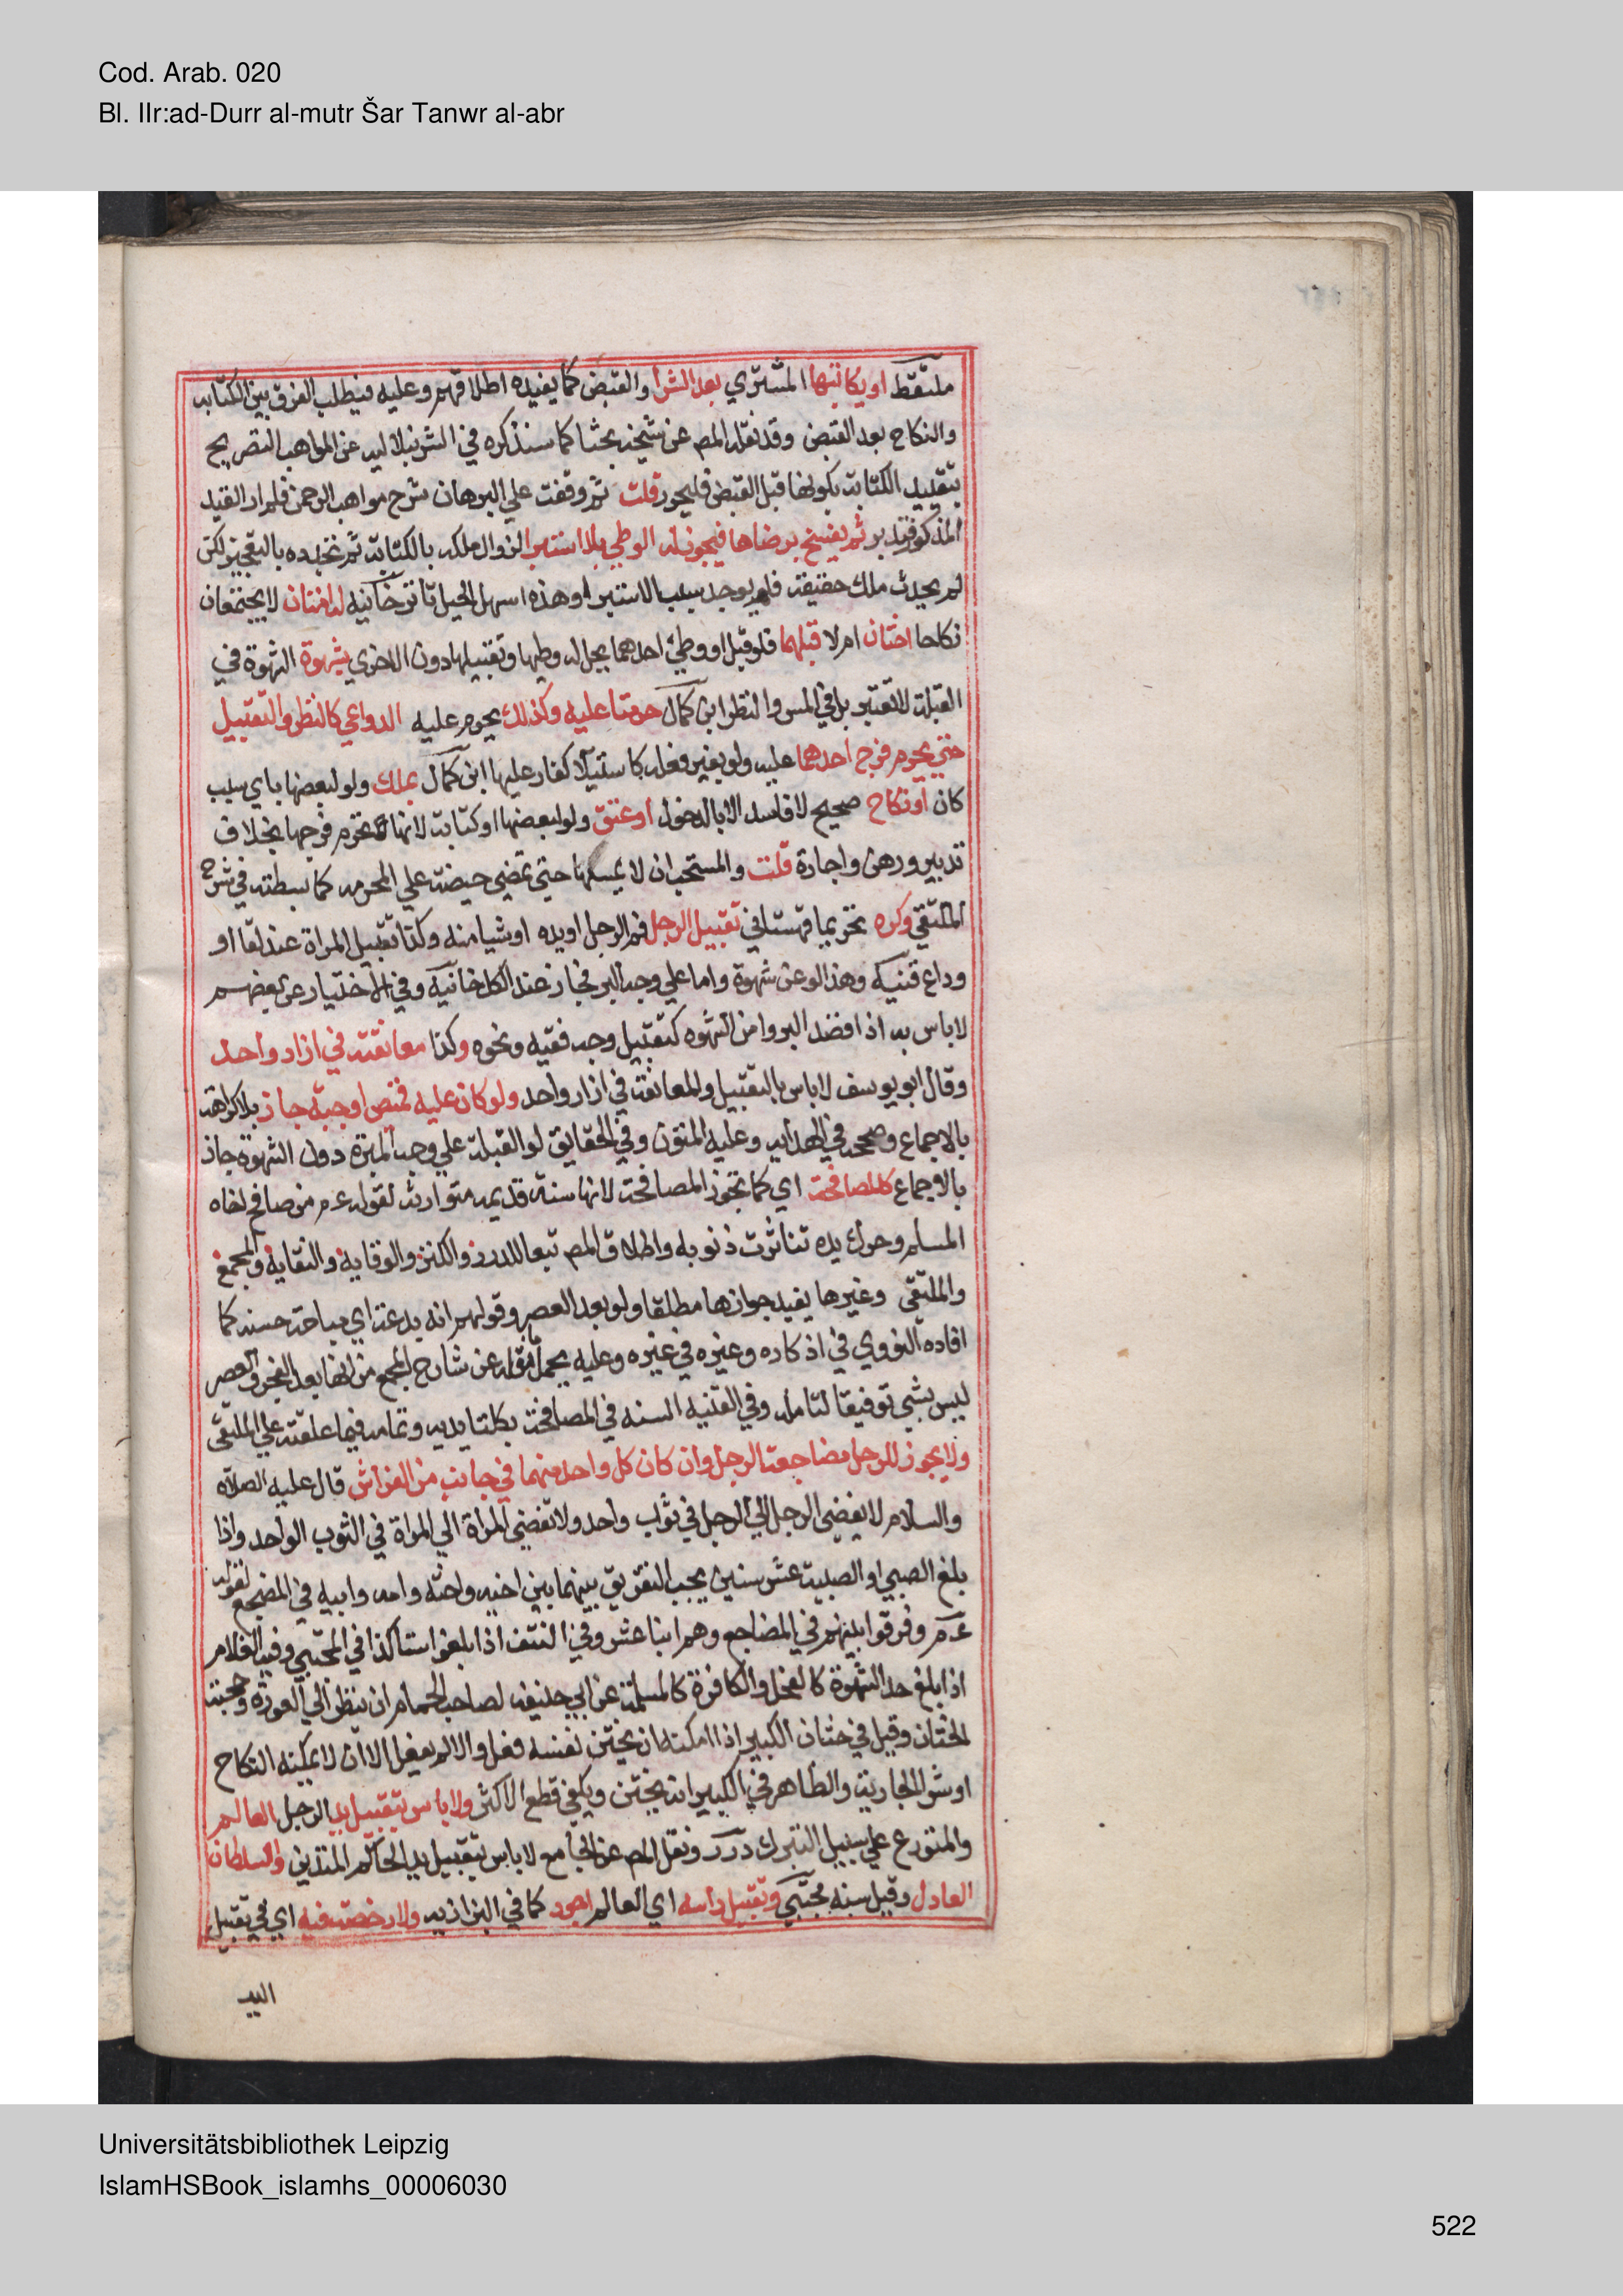 Cod. Arab. 020
Bl. IIr:ad-Durr al-mutr Šar Tanwr al-abr
ملتقط او يكاتبها المشتري بعد الشرا والقبض كما يفيده اطلاقهم وعليه فيطلب الفرق بين الكتابه
والنكاح بعد القبض وقد نقله المص عن شيخه بحثا كما سنذكره في الشرنبلاليه عن المواهب التصريح
بتقييد الكتابة بكونها قبل القبض فليحرر قلت ثم وقفت علي البرهان شرح مواهب الرحمن فلم ار القيد
المذكور فتدبر ثم يفسخ برضاها فيجوز له الوطي بلا استبرا لزوال ملكه بالكتابة ثم تجدده بالتعجيز لكن
لم يحدث ملك حقيقة فلم يوجد سبب الاستبرا وهذه اسهل الحيل تاترخانيه له امتان لا يجتمعان
نكاحا اختان ام لا قبلهما فلو قبل او وطئ احدهما يحل له وطيها وتقبيلها دون الاخري بشهوة الشهوة في
القبلة لا تعتبر بل في المس والنظر ابن كمال حرمتا عليه وكذلك يحرم عليه الدواعي كالنظر والتقبيل
حتي يحرم فرج احدهما عليه ولو بغير فعله كاستيلا كفار عليها ابن كمال بملك ولو لبعضها باي سبب
كان او نكاح صحيح لا فاسد الا بالدخول او عتق ولو لبعضها او كتابة لانها تحرم فرجها بخلاف
تدبير ورهن واجارة قلت والمستحب ان لا يمسها حتي تمضي حيضة علي المحرمه كما بسطته في شرح
الملتقي وكره تحريما قهستاني تقبيل الرجل فم الرجل او يده او شيا منه وكذا تقبيل المراة عند لقا او
وداع قنيه وهذا لو عن شهوة واما علي وجه البر فجاز عند الكل خانيه وفي الاختيار عن بعضهم
لا باس به اذا قصد البر وامن الشهوه كتقبيل وجه فقيه ونحوه وكذا معانقته في ازار واحد
وقال ابو يوسف لا باس بالتقبيل والمعانقة في ازار واحد ولو كان عليه قميص او جبة جاز بلا كراهة
بالاجماع وصححه في الهدايه وعليه المتون وفي الحقايق لو القبلة علي وجه المبرة دون الشهوة جاز
بالاجماع كالمصافحة اي كما تجوز المصافحة لانها سنة قديمه متواترة لقوله عم من صافح اخاه
المسلم وحرك يده تناثرت ذنوبه واطلاق المص تبعا للدرر والكنز والوقايه والنقايه والمجمع
والملتقي وغيرها يفيد جوازها مطلقا ولو بعد العصر وقولهم انه بدعة اي مباحة حسنه كما
افاده النووي في اذكاره وغيره في غيره وعليه يحمل ما نقله عن شارح المجمع من انها بعد الفجر والعصر
ليس بشي توفيقا فتامله وفي القنيه السنه في المصافحة بكلتا يديه وتمامه فيما علقته علي الملتقي
ولا يجوز للرجل مضاجعة الرجل وان كان كل واحد منهما في جانب من الفراش قال عليه الصلاه
والسلام لا يفضي الرجل الي الرجل في ثواب واحد ولا تفضي المراة الي المراة في الثوب الواحد واذا
بلغ الصبي او الصبية عشر سنين يجب التفريق بينهما بين اخيه واخته وامه وابيه في المضجع لقوله
عم وفرقوا بينهم في المضاجع وهم ابنا عشر وفي النتف اذا بلغوا ستا كذا في المجتبي وفيه الغلام
اذا بلغ حد الشهوة كالفحل والكافرة كالمسلمة عن ابي حنيفه لصاحب الحمام ان ينظر الي العورة وحجته
الختان وقيل في ختان الكبير اذا امكنه ان يختن نفسه فعل والا لم يفعل الا ان لا يمكنه النكاح
او شرا الجارية والظاهر في الكبير انه يختن ويكفي قطع الاكثر ولا باس بتقبيل يد الرجل العالم
والمتورع علي سبيل التبرك درر ونقل المص عن الجامع لا باس بتقبيل يد الحاكم المتدين والسلطان
العادل وقيل سنه مجتبي وتقبيل راسه اي العالم اجود كما في البزازيه ولا رخصة فيه اي في تقبيل
اليد
Universitätsbibliothek Leipzig
IslamHSBook_islamhs_00006030
522